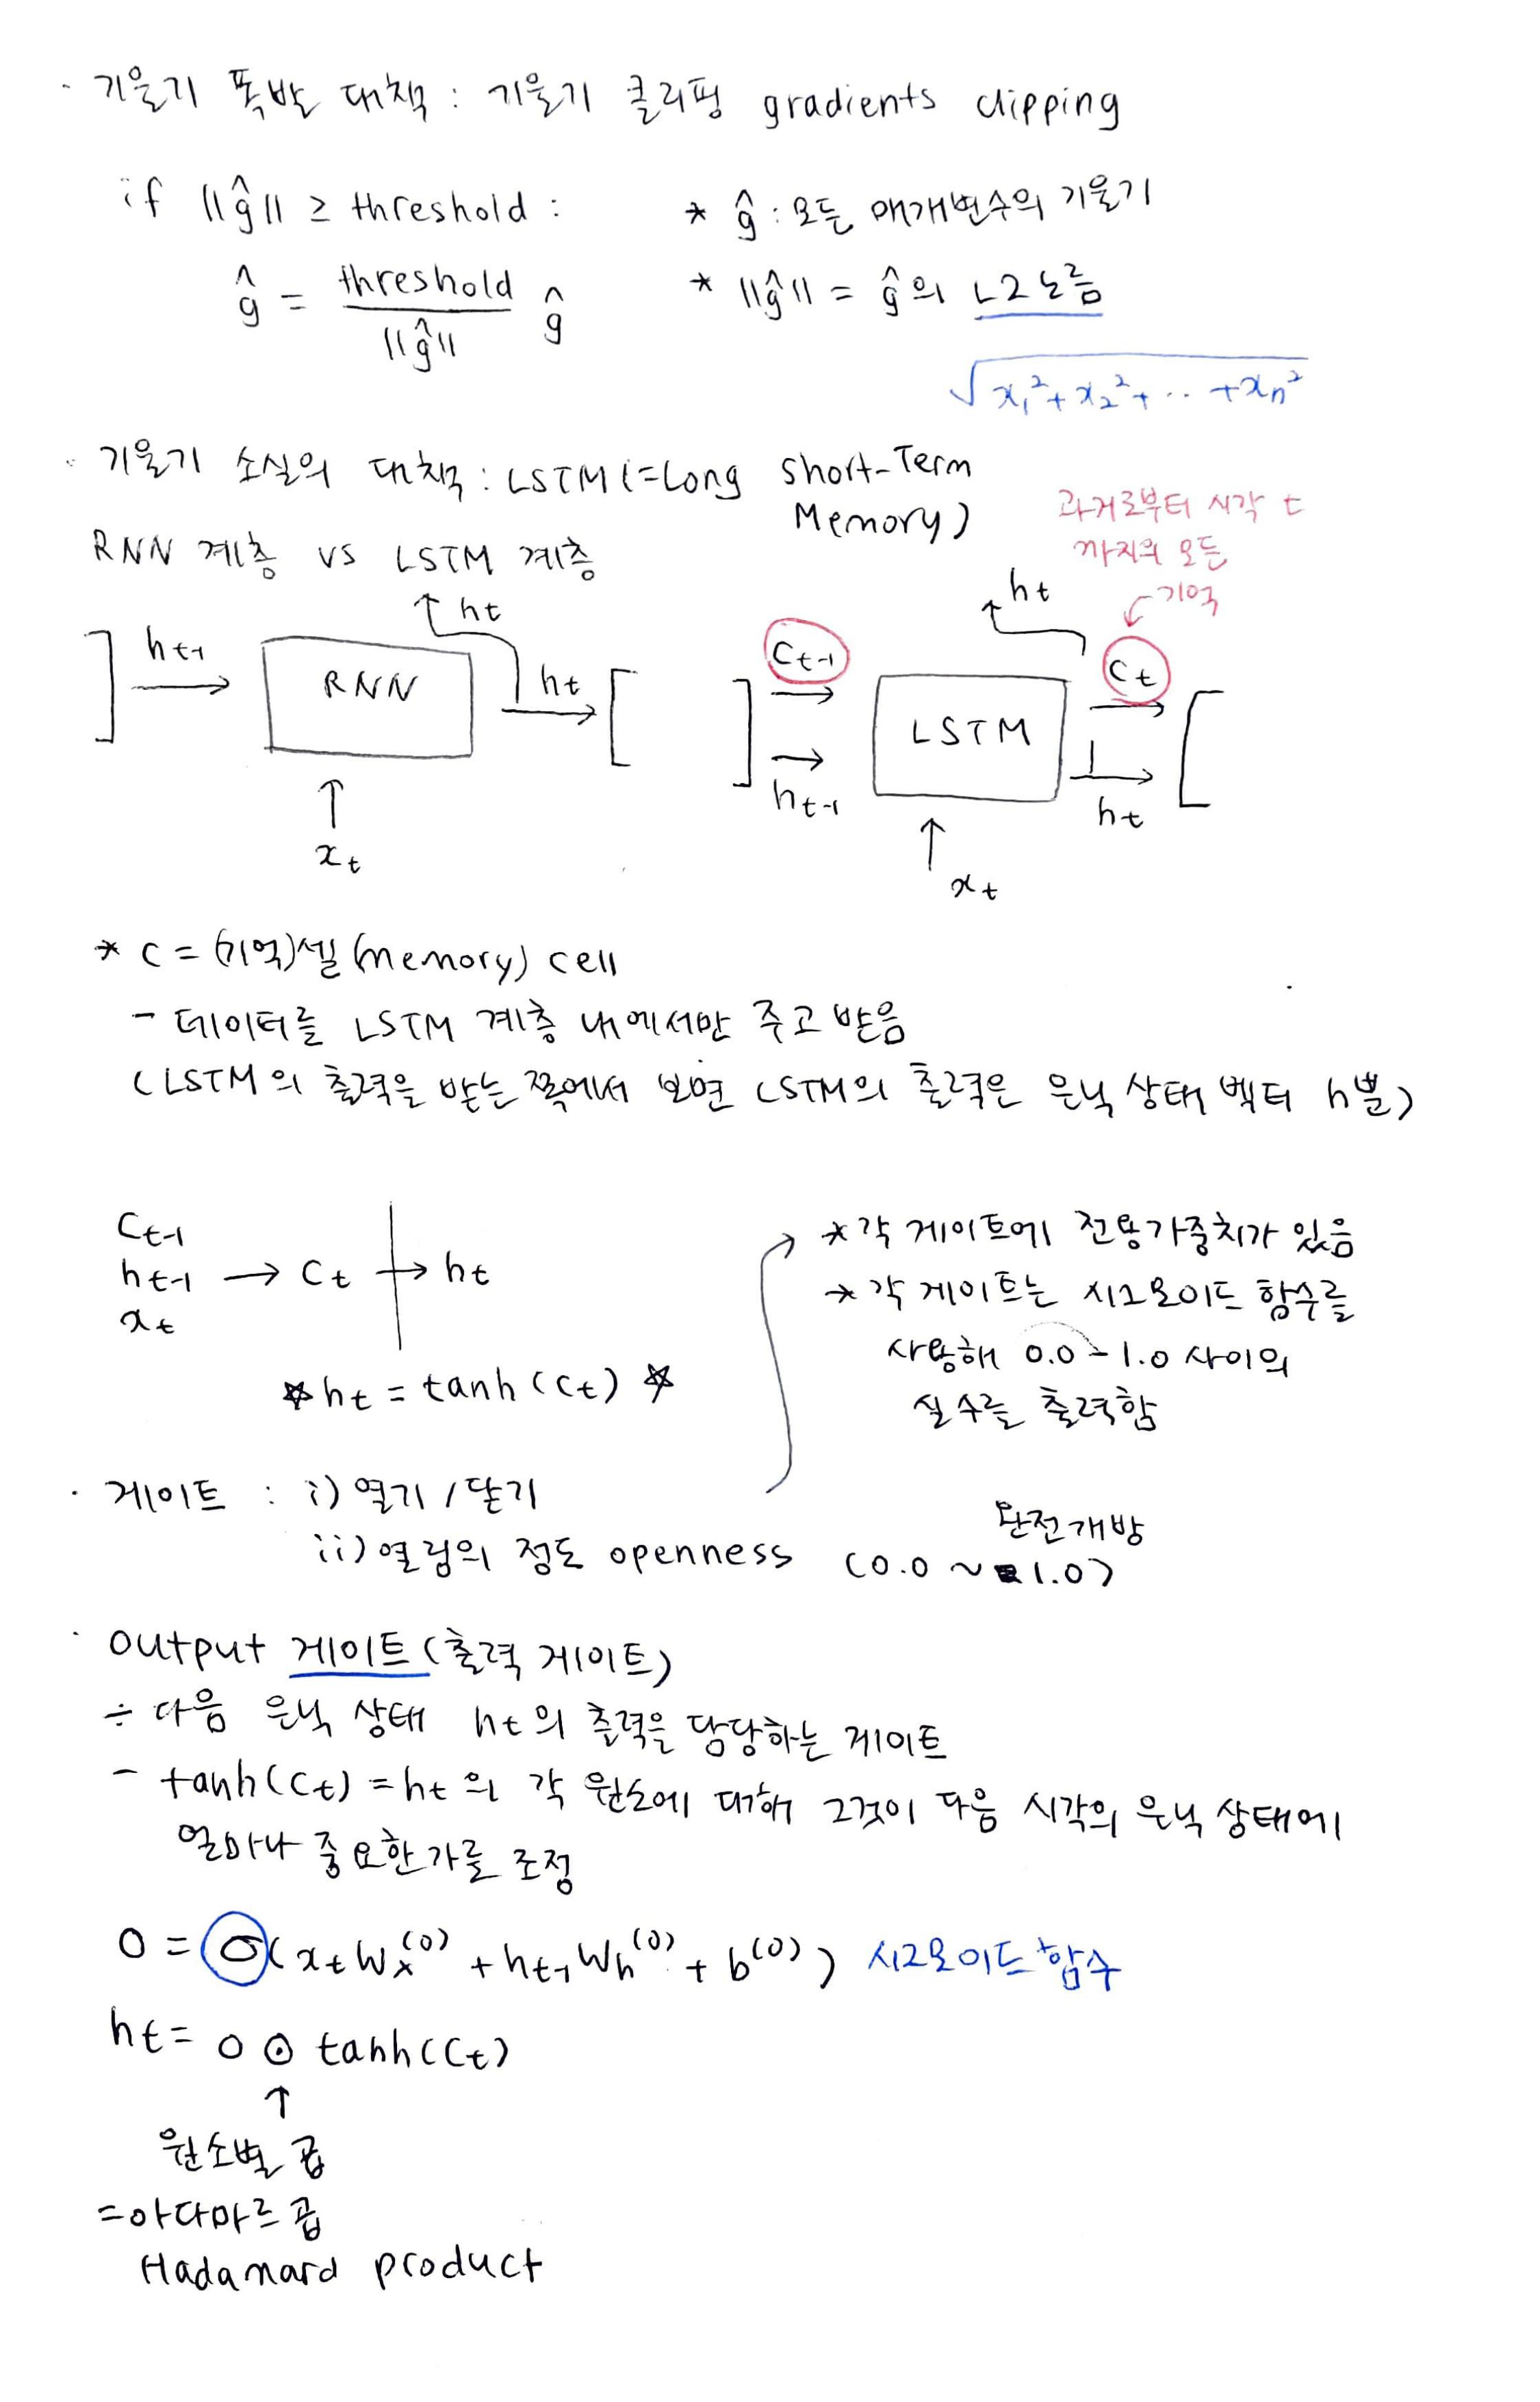 · 기울기 폭발 대책 : 기울기 클리핑 gradients clipping
if ||ĝ|| ≥ threshold :
ĝ = threshold / ||ĝ|| ĝ
* ĝ : 모든 매개변수의 기울기
* ||ĝ|| = ĝ의 L2 노름
√(x₁² + x₂² + ‥ + xn²)
· 기울기 소실의 대책 : LSTM (=Long Short-Term
Memory)
RNN 계층 vs LSTM 계층
과거로부터 시각 t
까지의 모든
기억
ht-1
RNN
ht
ht
xt
Ct-1
ht-1
LSTM
ht
Ct
ht
xt
* C = (기억)셀 (memory) cell
- 데이터를 LSTM 계층 내에서만 주고 받음
(LSTM의 출력을 받는 쪽에서 보면 LSTM의 출력은 은닉 상태 벡터 h뿐)
Ct-1
ht-1 → Ct → ht
xt
☆ ht = tanh(Ct) ☆
* 각 게이트에 전용가중치가 있음
* 각 게이트는 시그모이드 함수를
사용해 0.0 ~ 1.0 사이의
실수를 출력함
· 게이트 : i) 열기 / 닫기
ii) 열림의 정도 openness (0.0 ~ 1.0)
완전개방
· output 게이트 (출력 게이트)
÷ 다음 은닉 상태 ht의 출력을 담당하는 게이트
- tanh(Ct) = ht의 각 원소에 대해 그것이 다음 시각의 은닉 상태에
얼마나 중요한가를 조정
o = σ(xtWx(o) + ht-1Wh(o) + b(o)) 시그모이드 함수
ht = o ⊙ tanh(Ct)
↑
원소별 곱
= 아다마르 곱
Hadamard product